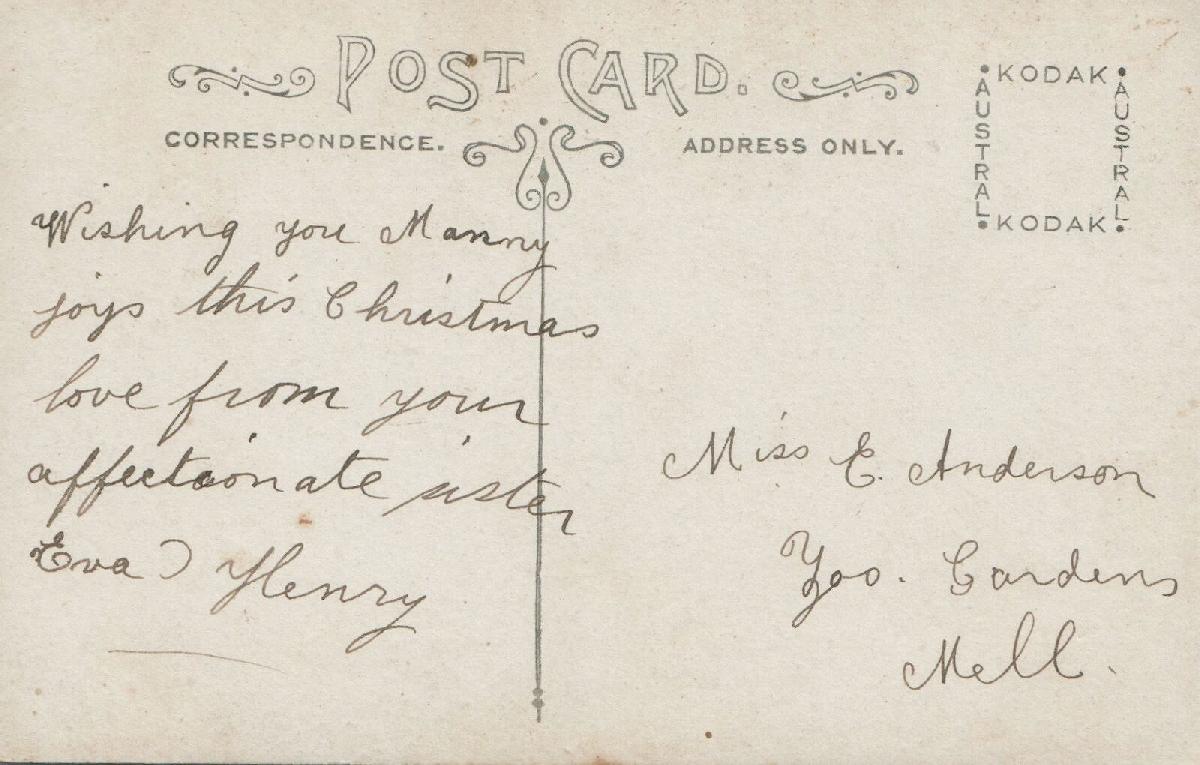 POST CARD.
CORRESPONDENCE.
ADDRESS ONLY.
KODAK
AUSTRAL
AUSTRAL
KODAK
Wishing you Manny
joys this Christmas
love from your
affectionate sister
Eva) Henry
Miss E. Anderson
Zoo. Gardens
Mell.